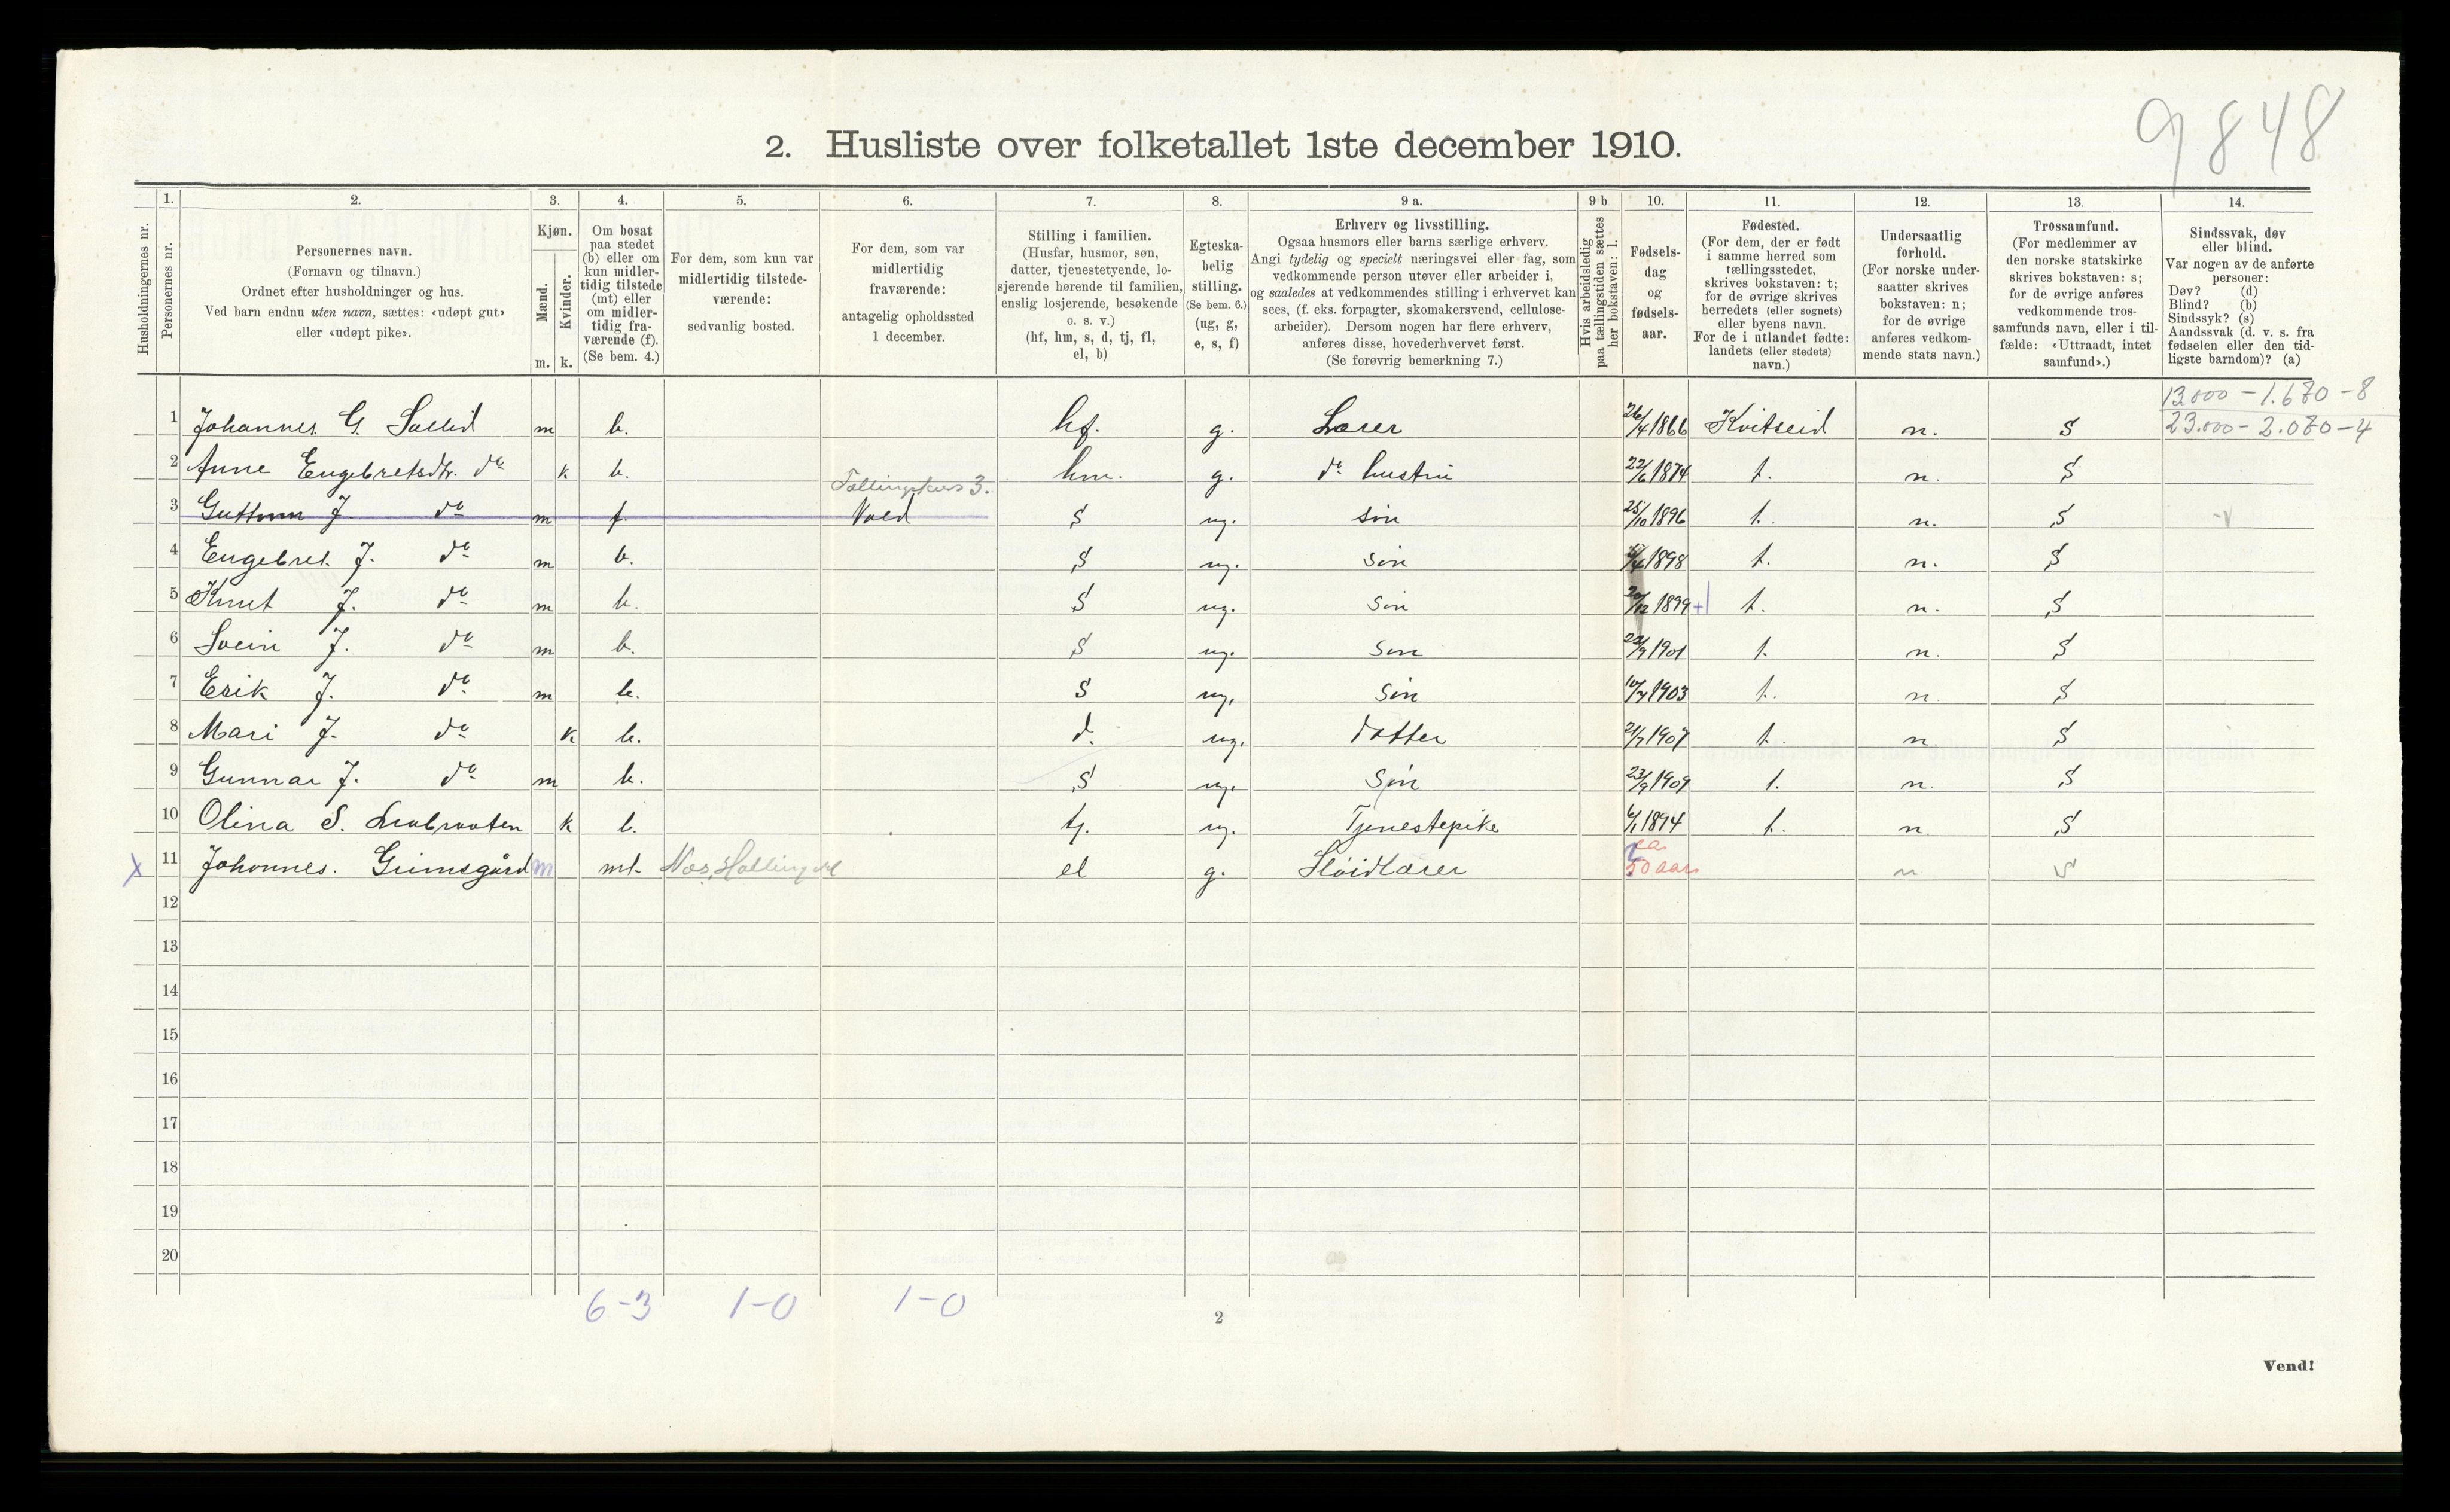 9848
2. Husliste over folketallet 1ste december 1910.
Husholdningernes nr.
1. Personernes nr.
2. Personernes navn. (Fornavn og tilnavn.) Ordnet efter husholdninger og hus. Ved barn endnu uten navn, sættes: «udøpt gut» eller «udøpt pike».
3. Kjøn. Mænd. m. Kvinder. k.
4. Om bosat paa stedet (b) eller om kun midlertidig tilstede (mt) eller om midlertidig fraværende (f). (Se bem. 4.)
5. For dem, som kun var midlertidig tilstedeværende: sedvanlig bosted.
6. For dem, som var midlertidig fraværende: antagelig opholdssted 1 december.
7. Stilling i familien. (Husfar, husmor, søn, datter, tjenestetyende, losjerende hørende til familien, enslig losjerende, besøkende o. s. v.) (hf, hm, s, d, tj, fl, el, b)
8. Egteskabelig stilling. (Se bem. 6.) (ug, g, e, s, f)
9 a. Erhverv og livsstilling. Ogsaa husmors eller barns særlige erhverv. Angi tydelig og specielt næringsvei eller fag, som vedkommende person utøver eller arbeider i, og saaledes at vedkommendes stilling i erhvervet kan sees, (f. eks. forpagter, skomakersvend, cellulosearbeider). Dersom nogen har flere erhverv, anføres disse, hovederhvervet først. (Se forøvrig bemerkning 7.)
9 b Hvis arbeidsledig paa tællingstiden sættes her bokstaven: l.
10. Fødselsdag og fødselsaar.
11. Fødested. (For dem, der er født i samme herred som tællingsstedet, skrives bokstaven: t; for de øvrige skrives herredets (eller sognets) eller byens navn. For de i utlandet fødte: landets (eller stedets) navn.)
12. Undersaatlig forhold. (For norske undersaatter skrives bokstaven: n; for de øvrige anføres vedkommende stats navn.)
13. Trossamfund. (For medlemmer av den norske statskirke skrives bokstaven: s; for de øvrige anføres vedkommende trossamfunds navn, eller i tilfælde: «Uttraadt, intet samfund».)
14. Sindssvak, døv eller blind. Var nogen av de anførte personer: Døv? (d) Blind? (b) Sindssyk? (s) Aandssvak (d. v. s. fra fødselen eller den tidligste barndom)? (a)
13.000 - 1.680 - 8
1 Johannes G. Sallid m b. hf. g. Lærer 26/4 1866 Kvitseid n. S 23.000 - 2.080 - 4
2 Anne Engebretsdtr. do k b. hm. g. do hustru 22/6 1874 t. n. S
3 Guttorm J. do m f. Vold S ug. søn 25/10 1896 t. n. S
4 Engebret J. do m b. S ug. søn 1898 t. n. S
5 Knut J. do m b. S ug. søn 1899 t. n. S
6 Svein J. do m b. S ug. søn 1901 t. n. S
7 Erik J. do m b. S ug. søn 1903 t. n. S
8 Mari J. do k b. d. ug. datter 1907 t. n. S
9 Gunnar J. do m b. S ug. søn 23/9 1909 t. n. S
10 Olina S. k b. tj. ug. Tjenestepike 1894 t. n. S
x 11 Johannes. Grimsgård m mt. Nes, Hallingdal el g. Sløidlærer ca 50 aar n S
12
13
14
15
16
17
18
19
20
6-3 1-0 1-0
2
Vend!